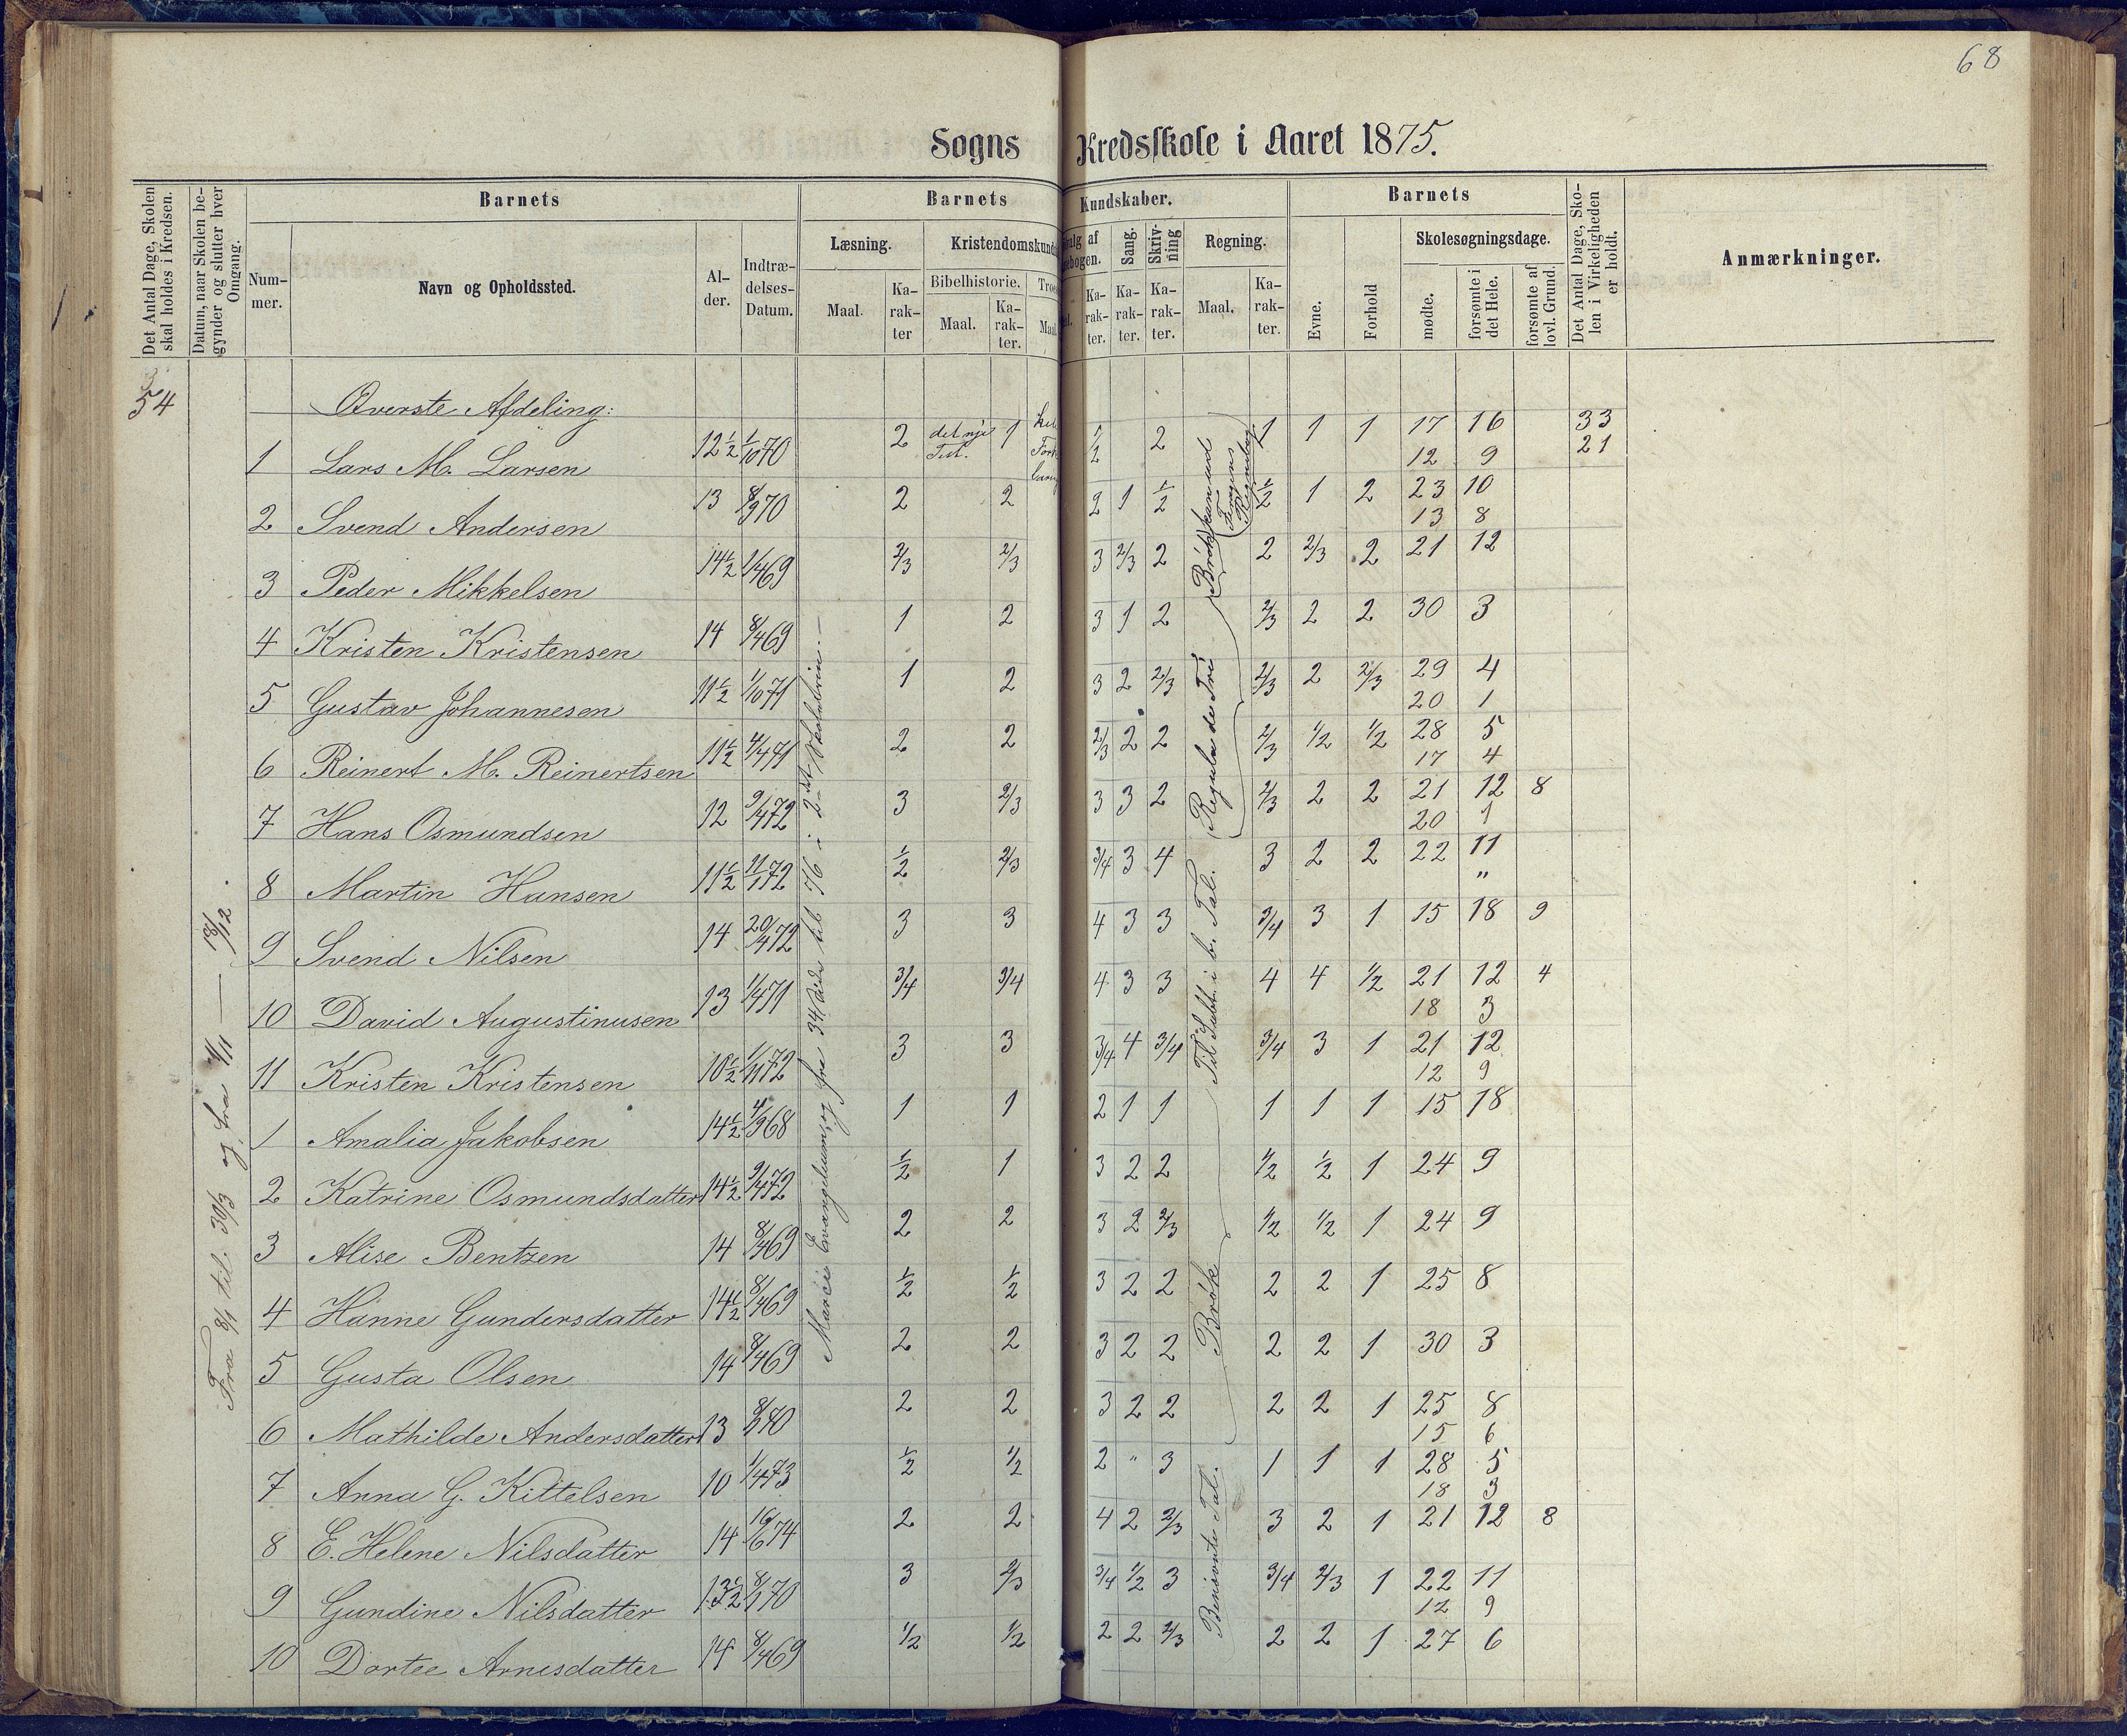 68
Sogns Kredsskole i Aaret 1875.
Det Antal Dage, Skolen skal holdes i Kredsen.
Datum, naar Skolen begynder og slutter hver Omgang.
Barnets
Nummer.
Navn og Opholdssted.
Alder.
Indtrædelses-Datum.
Barnets Kundskaber.
Læsning.
Maal.
Karakter
Kristendomskund
Bibelhistorie.
Maal.
Karakter.
Troes
Maal
Karakter.
Sang.
Karakter.
Skrivning
Karakter.
Regning.
Maal.
Karakter.
Barnets
Evne.
Forhold
Skolesøgningsdage.
mødte.
forsømte i det Hele.
forsømte af lovl. Grund.
Det Antal Dage, Skolen i Virkeligheden er holdt.
Anmærkninger.
54
Fra 8/1 til 30/3 og fra 4/11 — 18/12.
Øverste Afdeling:
1 Lars M. Larsen 12½ 1/10 70 2 det nye Test. 1 ½ 2 1 1 1 17 16 33
12 9 21
2 Svend Andersen 13 8/9 70 2 2 2 1 ½ ½ 1 2 23 10
13 8
3 Peder Mikkelsen 14½ 1/4 69 2/3 2/3 3 2/3 2 2 2/3 2 21 12
4 Kristen Kristensen 14 8/4 69 1 2 3 1 2 2/3 2 2 30 3
5 Gustav Johannesen 11½ 1/10 71 1 2 3 2 2/3 2/3 2 2/3 29 4
20 1
6 Reinert M. Reinertsen 11½ 4/4 71 2 2 2/3 2 2 2/3 1/2 1/2 28 5
17 4
7 Hans Osmundsen 12 9/4 72 3 2/3 3 3 2 2/3 2 2 21 12 8
20 1
8 Martin Hansen 11½ 11/1 72 ½ 2/3 3/4 3 4 3 2 2 22 11
"
9 Svend Nilsen 14 20/4 72 3 3 4 3 3 3/4 3 1 15 18 9
10 David Augustinusen 13 1/4 71 3/4 3/4 4 3 3 4 4 1/2 21 12 4
18 3
11 Kristen Kristensen 10½ 1/11 72 3 3 3/4 4 3/4 3/4 3 1 21 12
12 9
1 Amalia Jakobsen 14½ 4/9 68 1 1 2 1 1 1 1 1 15 18
2 Katrine Osmundsdatter 14½ 9/4 72 ½ 1 3 2 2 1/2 ½ 1 24 9
3 Alise Bentzen 14 8/4 69 2 2 3 2 2/3 1/2 1/2 1 24 9
4 Hanne Gundersdatter 14½ 8/4 69 ½ ½ 3 2 2 2 2 1 25 8
5 Gusta Olsen 14 8/4 69 2 2 3 2 2 2 2 1 30 3
6 Mathilde Andersdatter 13 2 2 3 2 2 2 2 1 25 8
15 6
7 Anna G. Kittelsen 10 1/4 73 ½ 1/2 2 " 3 1 1 1 28 5
18 3
8 E. Helene Nilsdatter 14 16/6 74 2 2 4 2 2/3 3 2 1 21 12 8
9 Gundine Nilsdatter 13½ 8/1 70 3 2/3 3/4 1/2 3 3/4 2/3 1 22 11
12 9
10 Dortee Arnesdatter 14 8/4 69 1/2 1/2 2 2 2/3 2 2 1 27 6
Marci Evangelium, og fra 34de til 76 i 2det Skoletrin.
Brøk
Regula de Tri
Til Subt. i b. Tal.
Brøk
Benævnte Tal.